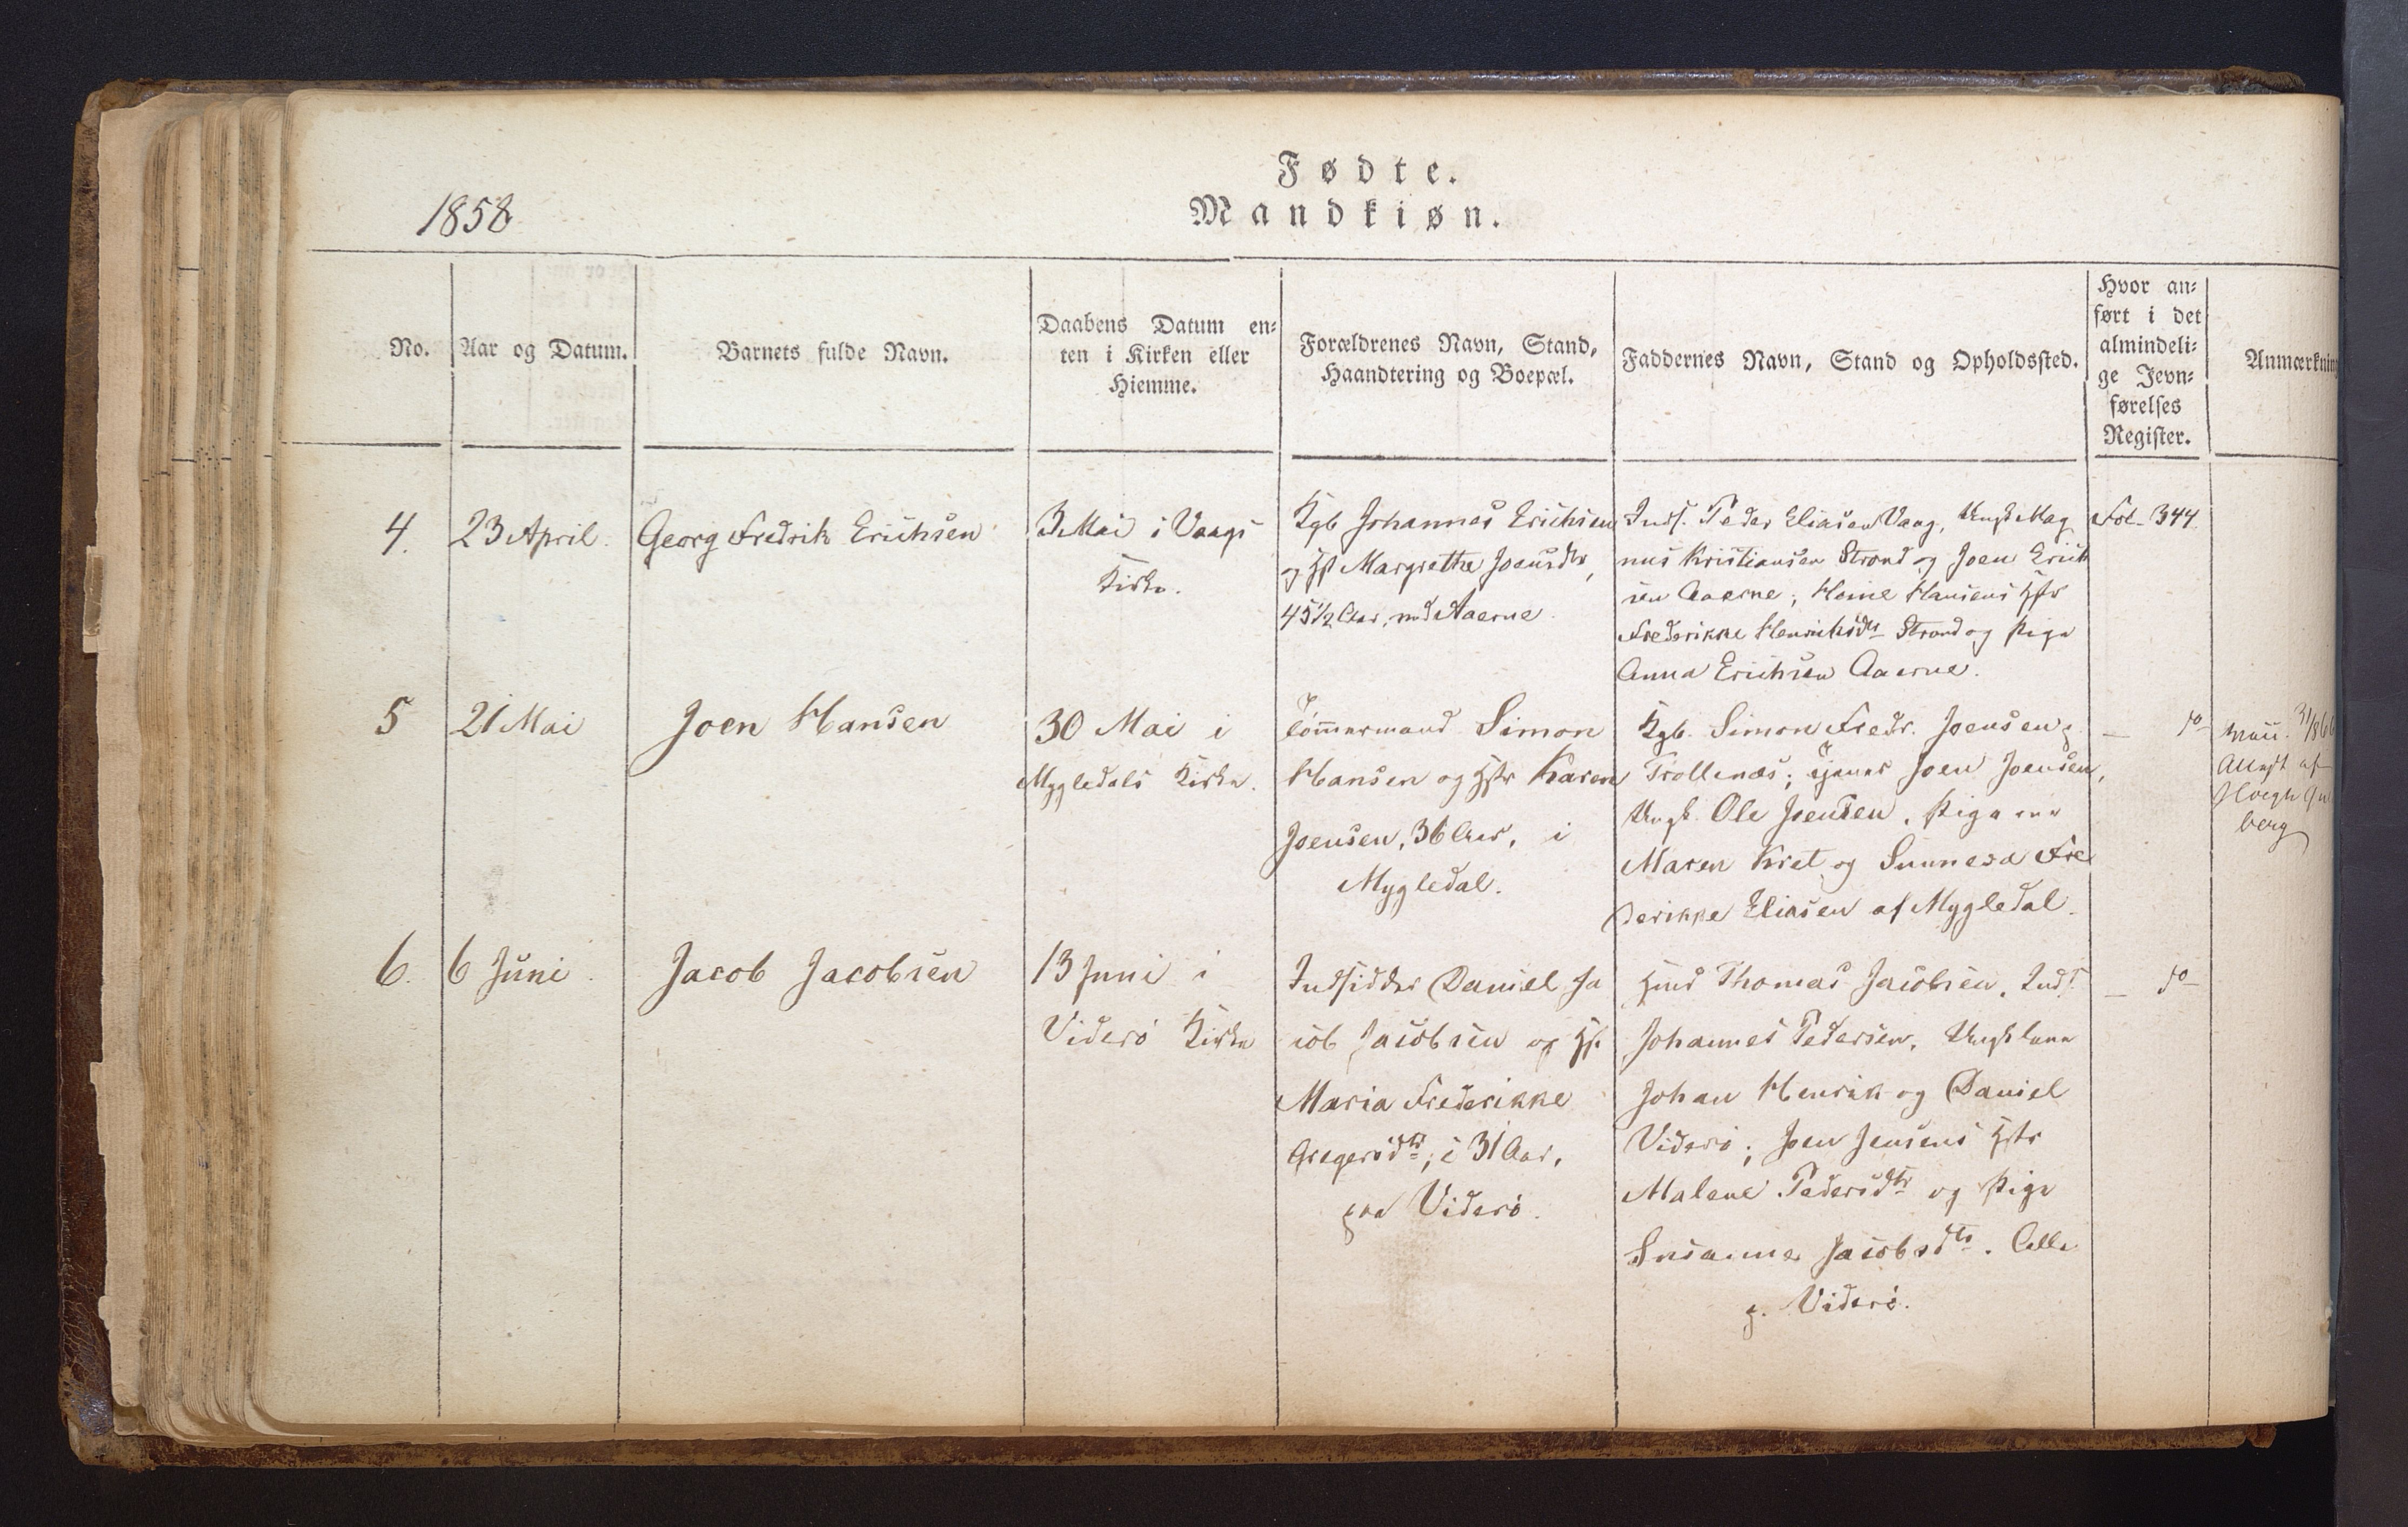 Fødte.
1858
Mandkiøn.
No.
Aar og Datum.
Barnets fulde Navn.
Daabens Datum en-
ten i Kirken eller
Hiemme.
Forældrenes Navn, Stand,
Haandtering og Boepæl.
Faddernes Navn, Stand og Opholdssted.
Hvor an-
ført i det
almindeli-
ge Jevn-
førelses
Register.
Anmærkning
4.
23 April.
Georg Fredrik Erichsen
3 Mai i Vaags
Kirke.
Kgb Johannes Erichsen
og Hst Margrethe Joensdtr,
45 1/2 Aar, Aaerne.
Inds. Peder Eliasen Vaag, Ungk Mag
nus Kristiansen Strond og Joen Erich
sen Aaerne; Heine Hansens Hstr
Frederikke Henrichsdtr Strond og Pige
Anna Erichsen Aaerne.
Fol. 344
5
21 Mai
Joen Hansen
30 Mai i
Mygledals Kirke.
Tømmermand Simon
Hansen og Hstr Karen
Joensen, 36 Aar, i
Mygledal.
Kgb. Simon Fredr. Joensen p.
Trollenæs; Joen Joensen,
Ungk. Ole Joensen, Pigerne
Maren Kret og Sunneva Fre
derikke Eliasen af Mygledal.
— do
Attest af
berg
6.
6 Juni.
Jacob Jacobsen
13 Juni i
Viderø Kirke
Indsidder Daniel Ja
cob Jacobsen og Hst
Maria Frederikke
Gregersdtr, i 31 Aar,
paa Viderø.
Hmd Thomas Jacobsen, Inds.
Johannes Pedersen, Ungkarlene
Johan Henrik og Daniel
Viderø; Joen Jensens Hstr
Malene Pedersdtr og Pige
Susanne Jacobsdtr. Alle
p. Viderø.
— do